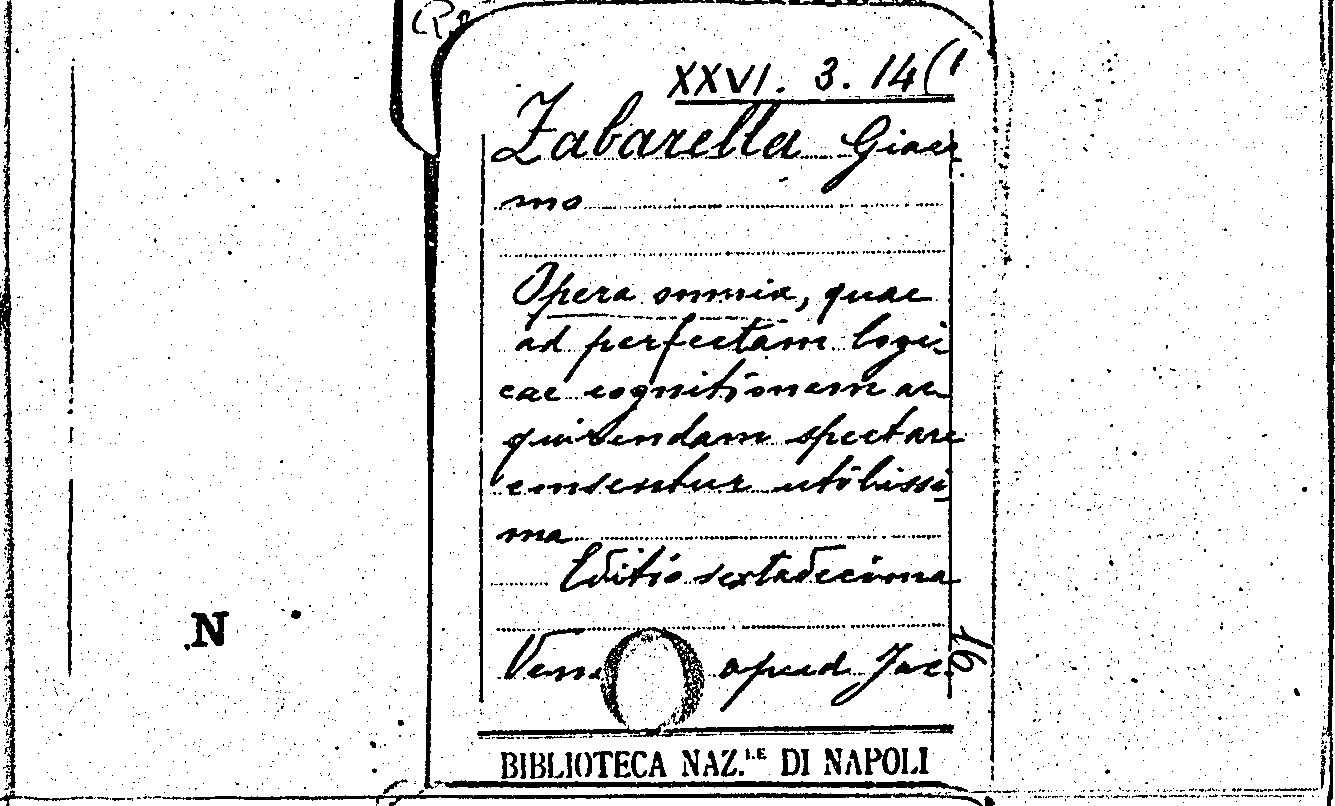 XXVI. 3. 14(1
Zabarella Giaco
mo
Opera omnia, quae
ad perfectam logi
cae cognitionem ac
quirendam spectare
censentur utilissi
ma
Editio sextadecima
apud Jac.
16
BIBLIOTECA NAZ.LE DI NAPOLI
N